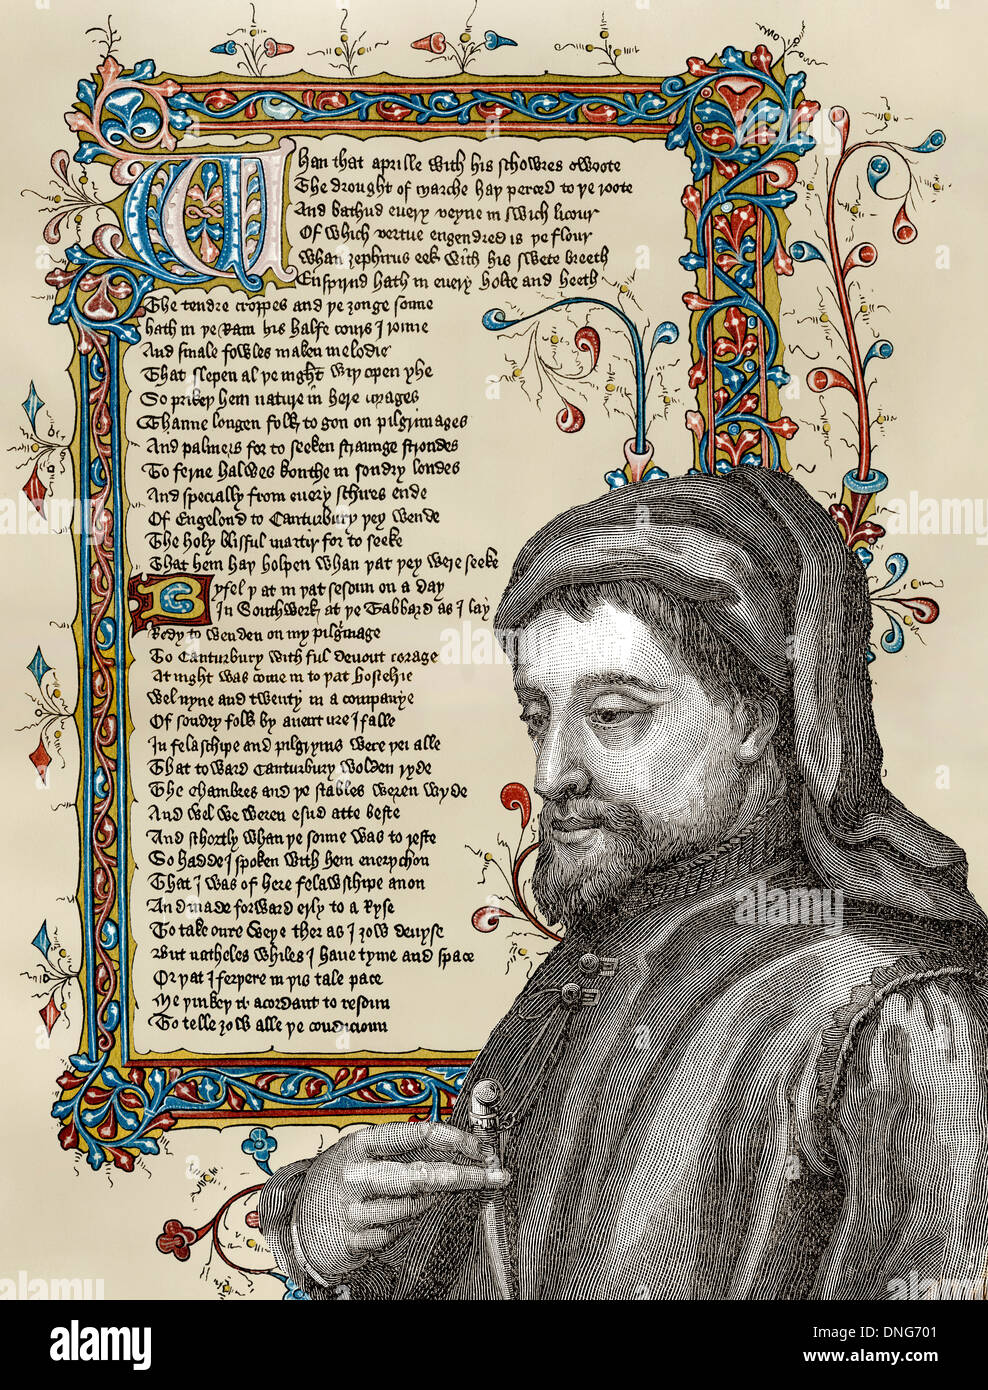 Whan that aprille with his schowres swoote
The drought of marche hay perced to ye roote
And bathud every veyne in swich licour
Of which vertue engendred is ye flour
Whan zephirus eek with his swete breeth
Enspirud hath in euery holte and heeth
The tendre croppes and ye zonge sonne
hath in ye Ram his halfe cours I ronne
And smale fowles maken melodie
That slepen al ye night wiy open yhe
So prikey hem nature in here corages
Thanne longen folk to gon on pilgrimages
And palmers for to seeken straunge strondes
To ferne halwes kouthe in sondry londes
And specially from euery schires ende
Of Engelond to Canturbury yey wende
The holy blisful martir for to seeke
That hem hay holpen whan yat yey were seeke
Byfel yat in yat sesoun on a day
In Southwerk at ye Tabbard as I lay
Redy to wenden on my pilgrimage
To Canturbury with ful devout corage
At night was come in to yat hostelrie
Wel nyne and twenty in a companye
Of sondry folk by auenture I falle
In felaschipe and pilgryms were yei alle
That toward Canturbury wolden ryde
The chambres and ye stables weren wyde
And wel we weren esud atte beste
And schortly whan ye sonne was to reste
So hadde I spoken with hem euerychon
That I was of here felawschipe anon
And made forward erly to aryse
To take oure weye ther as I zow deuyse
But natheles whiles I haue tyme and space
Or yat I feryere in yis tale pace
Me yinkey it acordant to resoun
To telle zow alle ye condicioun
alamy
a
alamy
Image ID: DNG701
www.alamy.com